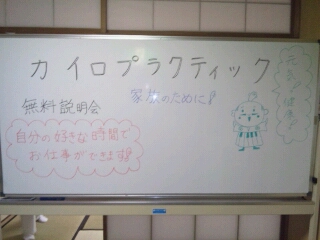 カイロプラクティック
家族のために!!
無料説明会
自分の好きな時間で
お仕事ができます!!
元気!健康!